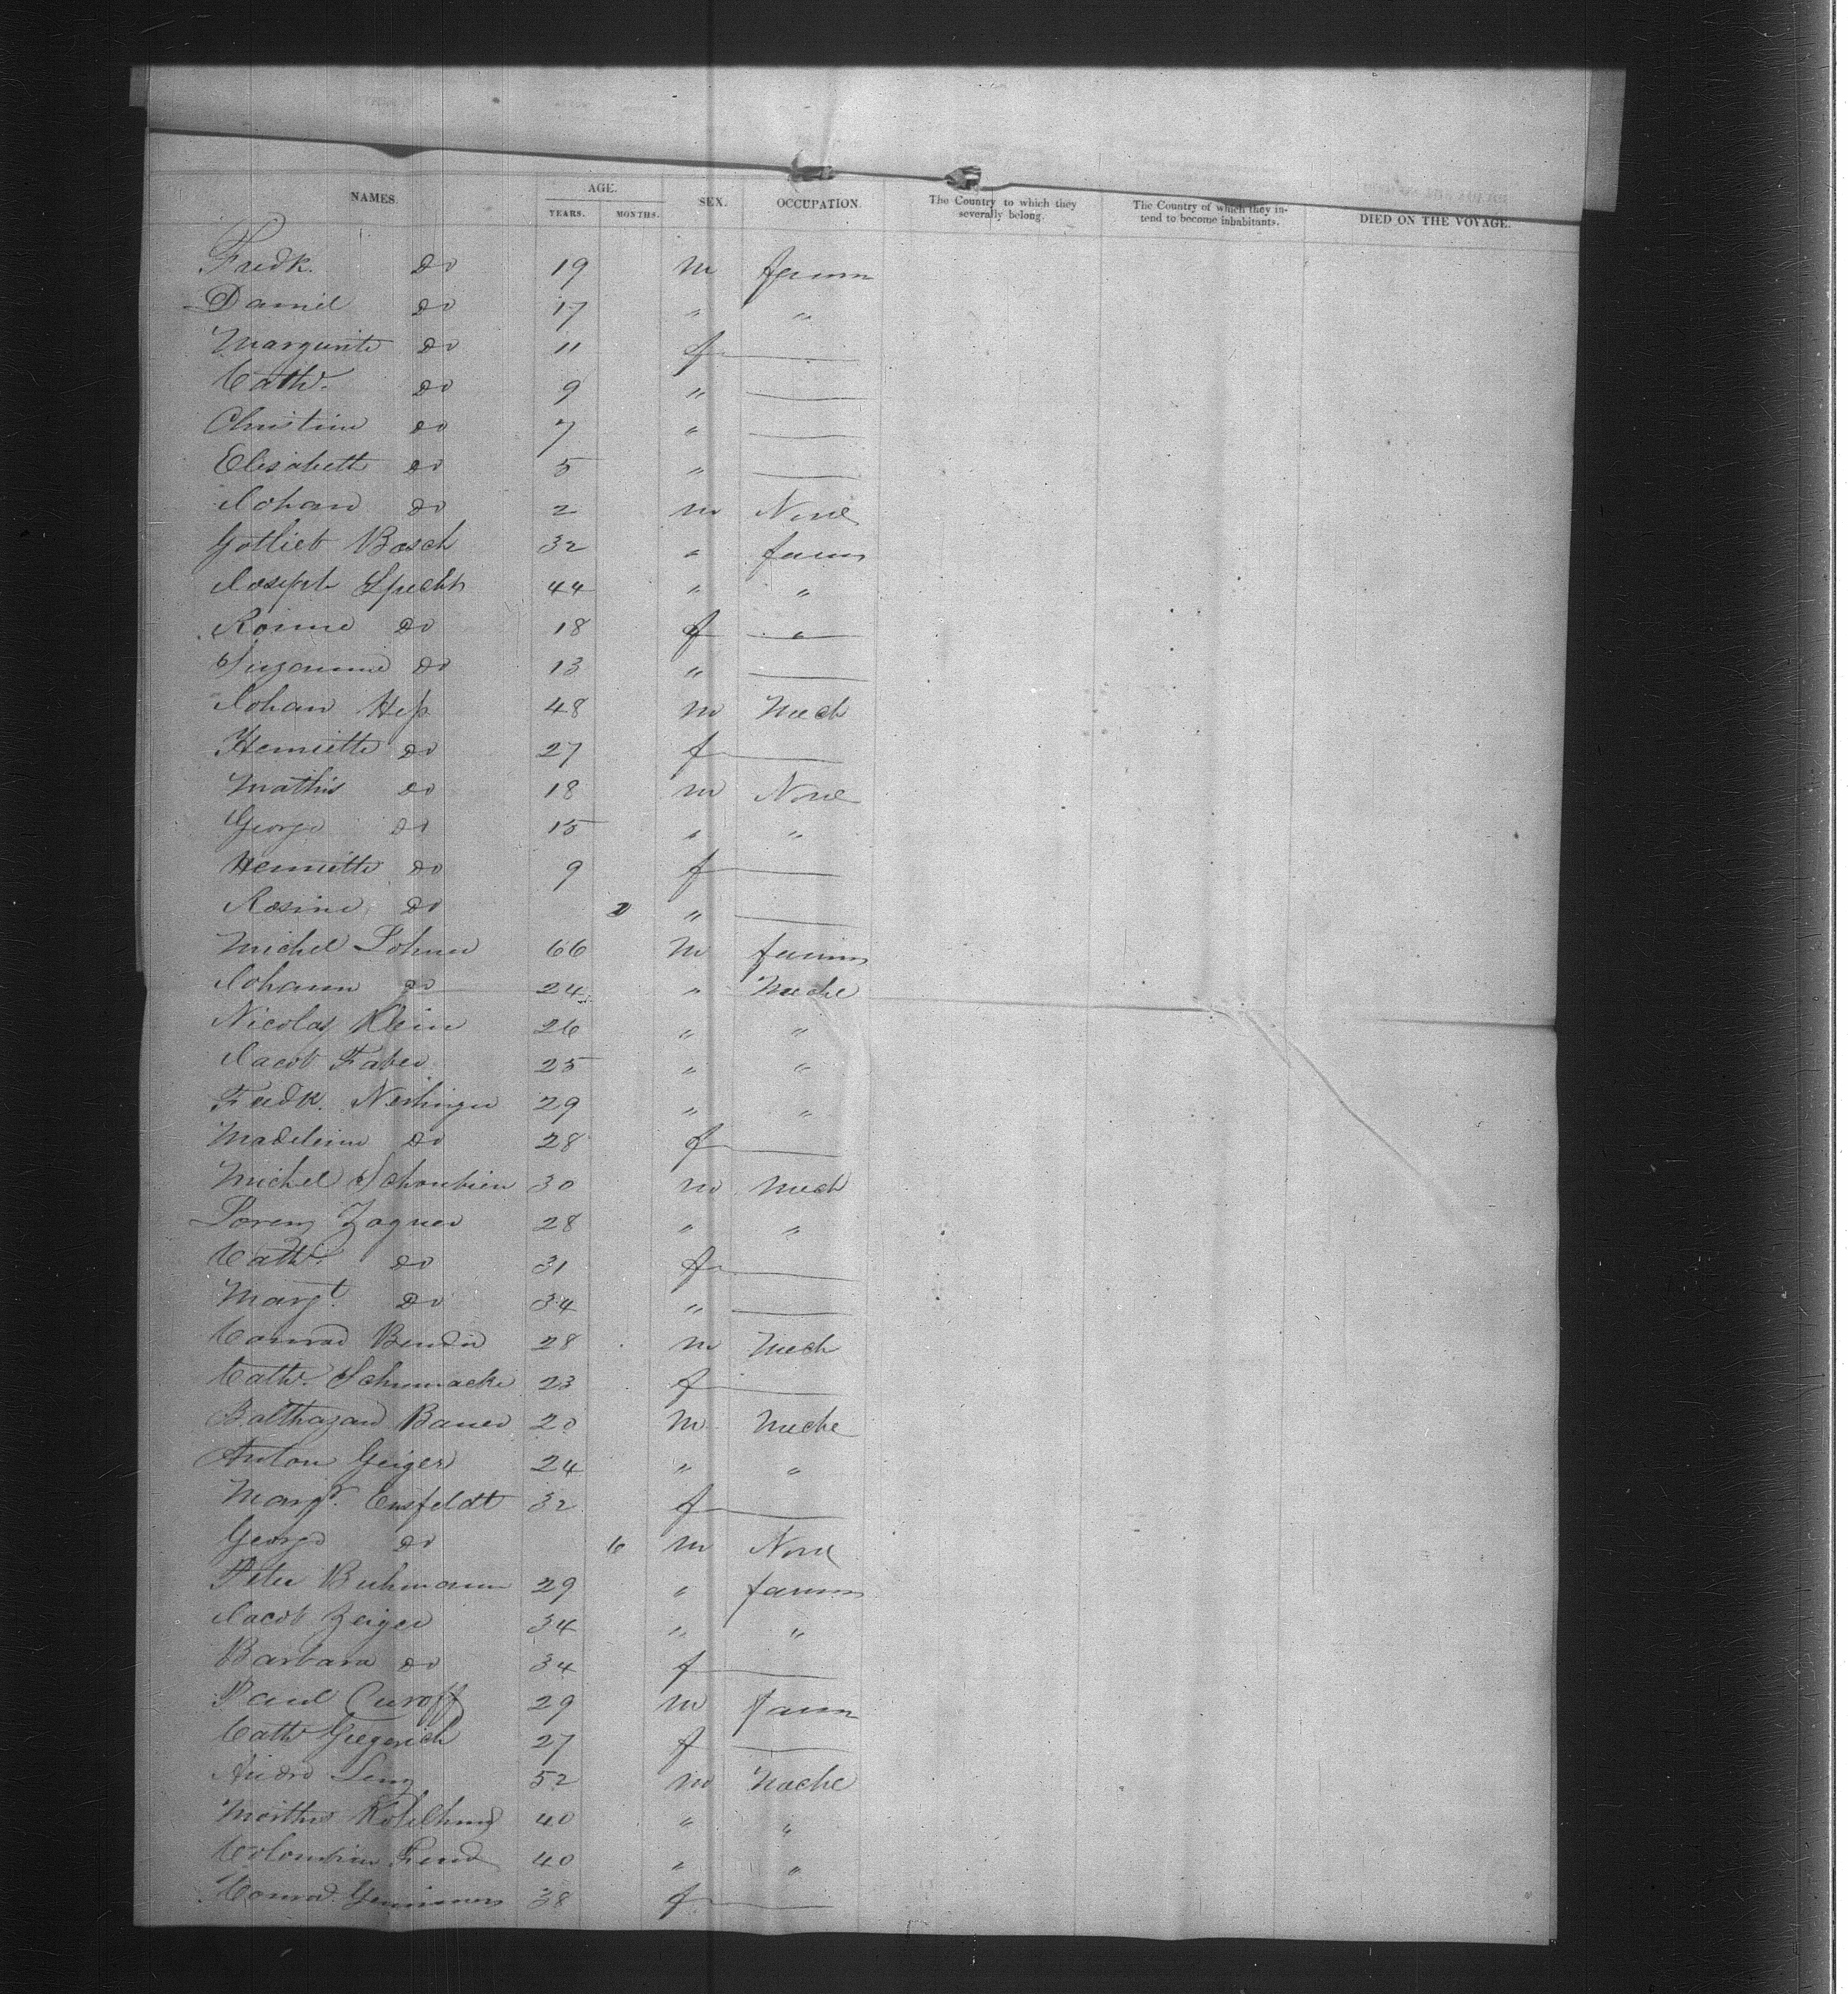 NAMES. AGE. YEARS. MONTHS. SEX. OCCUPATION. The Country to which they severally belong. The Country of which they intend to become inhabitants. DIED ON THE VOYAGE.
Fredk. do 19 m farm
Daniel do 17 " "
Margurite do 11 f
Cath. do 9 "
Christine do 7 "
Elisabeth do 5 "
Johan do 2 m None
Gottlieb Bosch 32 " farm
Joseph Specht 44 " "
Rosine do 18 f "
Suzanne do 13 "
Johan Hess 48 m Mech
Henriette do 27 f
Mathis do 18 m None
George do 15 " "
Henriette do 9 f
Rosine do "
Michel Lohner 66 m farm
Johann do 24 " Meche
Nicolas Klein 26 " "
Jacob Faber 25 " "
Fredk. 29 " "
Madeleine do 28 f
Michel 30 m Mech
Lorenz Zagner 28 " "
Cath. do 31 f
Margt. do 34 "
Conrad Bender 28 m Mech
Cath. Schumacke 23 f
Balthazar Bauer 20 m Meche
Anton Geiger 24 " "
Margt. Ensfeldt 32 f
George do 6 m None
Peter 29 " farm
Jacob Zeiger 34 " "
Barbara do 34 f
Paul 29 m farm
Cath Giegerich 27 f
Andre Lenz 52 m Meche
40 " "
40 " "
Conrad 38 f